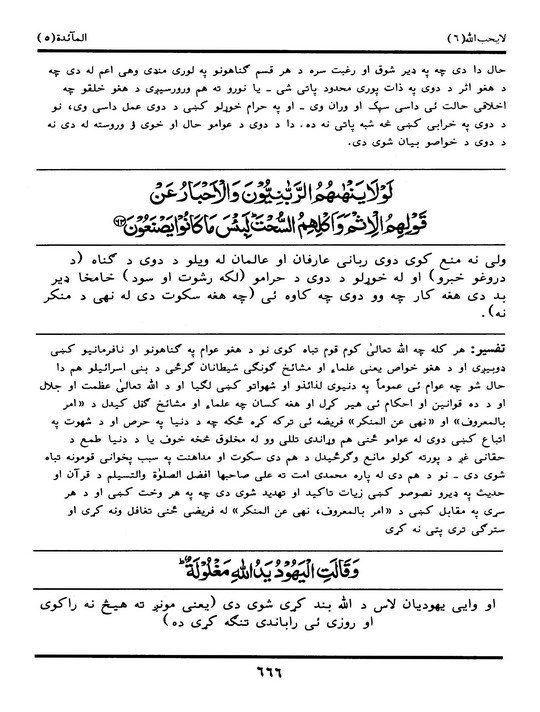 لايحب الله (٦) المآئدة (٥)
حال دا دی چه په ډیر شوق او رغبت سره د هر قسم ګناهونو په لوری منډی وهی اعم له دی چه
د هغو اثر د دوی په ذات پوری محدود پاتی شی ــ یا نورو ته هم ورورسیږی د هغو خلقو چه
اخلاقی حالت ئی داسی سپک او وران وی ــ او په حرام خوړلو کښی د دوی عمل داسی وی، نو
د دوی په خرابی کښی څه شبه پاتی نه ده. دا د دوی د عوامو حال او خوی ؤ وروسته له دی نه
د دوی د خواصو بیان شوی دی.
لَوْلَا يَنْهٰىهُمُ الرَّبّٰنِيُّوْنَ وَالْاَحْبَارُ عَنْ
قَوْلِهِمُ الْاِثْمَ وَاَكْلِهِمُ السُّحْتَ ۭ لَبِئْسَ مَا كَانُوْا يَصْنَعُوْنَ ﴿٦٣﴾
ولی نه منع کوی دوی ربانی عارفان او عالمان له ویلو د دوی د ګناه (د
دروغو خبرو) او له خوړلو د دوی د حرامو (لکه رشوت او سود) خامخا ډیر
بد دی هغه کار چه وو دوی چه کاوه ئی (چه هغه سکوت دی له نهی د منکر
نه).
تفسیر: هر کله چه الله تعالیٰ کوم قوم تباه کوی نو د هغو عوام په ګناهونو او نافرمانیو کښی
ډوبیږی او د هغو خواص یعنی علماء او مشائخ ګونګی شیطانان ګرځی د بنی اسرائیلو هم دا
حال شو چه عوام ئی عموماً په دنیوی لذائذو او شهواتو کښی لګیا او د الله تعالیٰ عظمت او جلال
او د ده قوانین او احکام ئی هیر کړل او هغه کسان چه علماء او مشائخ ګڼل کیدل د «امر
بالمعروف» او «نهی عن المنکر» فریضه ئی ترکه کړه ځکه چه د دنیا په حرص او د شهوت په
اتباع کښی دوی له عوامو ځنی هم وړاندی تللی وو له مخلوق څخه خوف یا د دنیا طمع د
حقانی غږ د پورته کولو مانع وګرځیدل د هم دی سکوت او مداهنت په سبب پخوانی قومونه تباه
شوی دی ــ نو د هم دی له پاره محمدی امت ته علی صاحبها افضل الصلوٰة والتسیلم د قرآن او
حدیث په ډیرو نصوصو کښی زیات تاکید او تهدید شوی دی چه په هر وخت کښی او د هر
سړی په مقابل کښی د «امر بالمعروف، نهی عن المنکر» له فریضی ځنی تغافل ونه کړی او
سترګی تری پتی نه کړی
وَقَالَتِ الْيَهُوْدُ يَدُ اللّٰهِ مَغْلُوْلَةٌ ۭ
او وایی یهودیان لاس د الله بند کړی شوی دی (یعنی مونږ ته هیڅ نه راکوی
او روزی ئی راباندی تنګه کړی ده)
٦٦٦